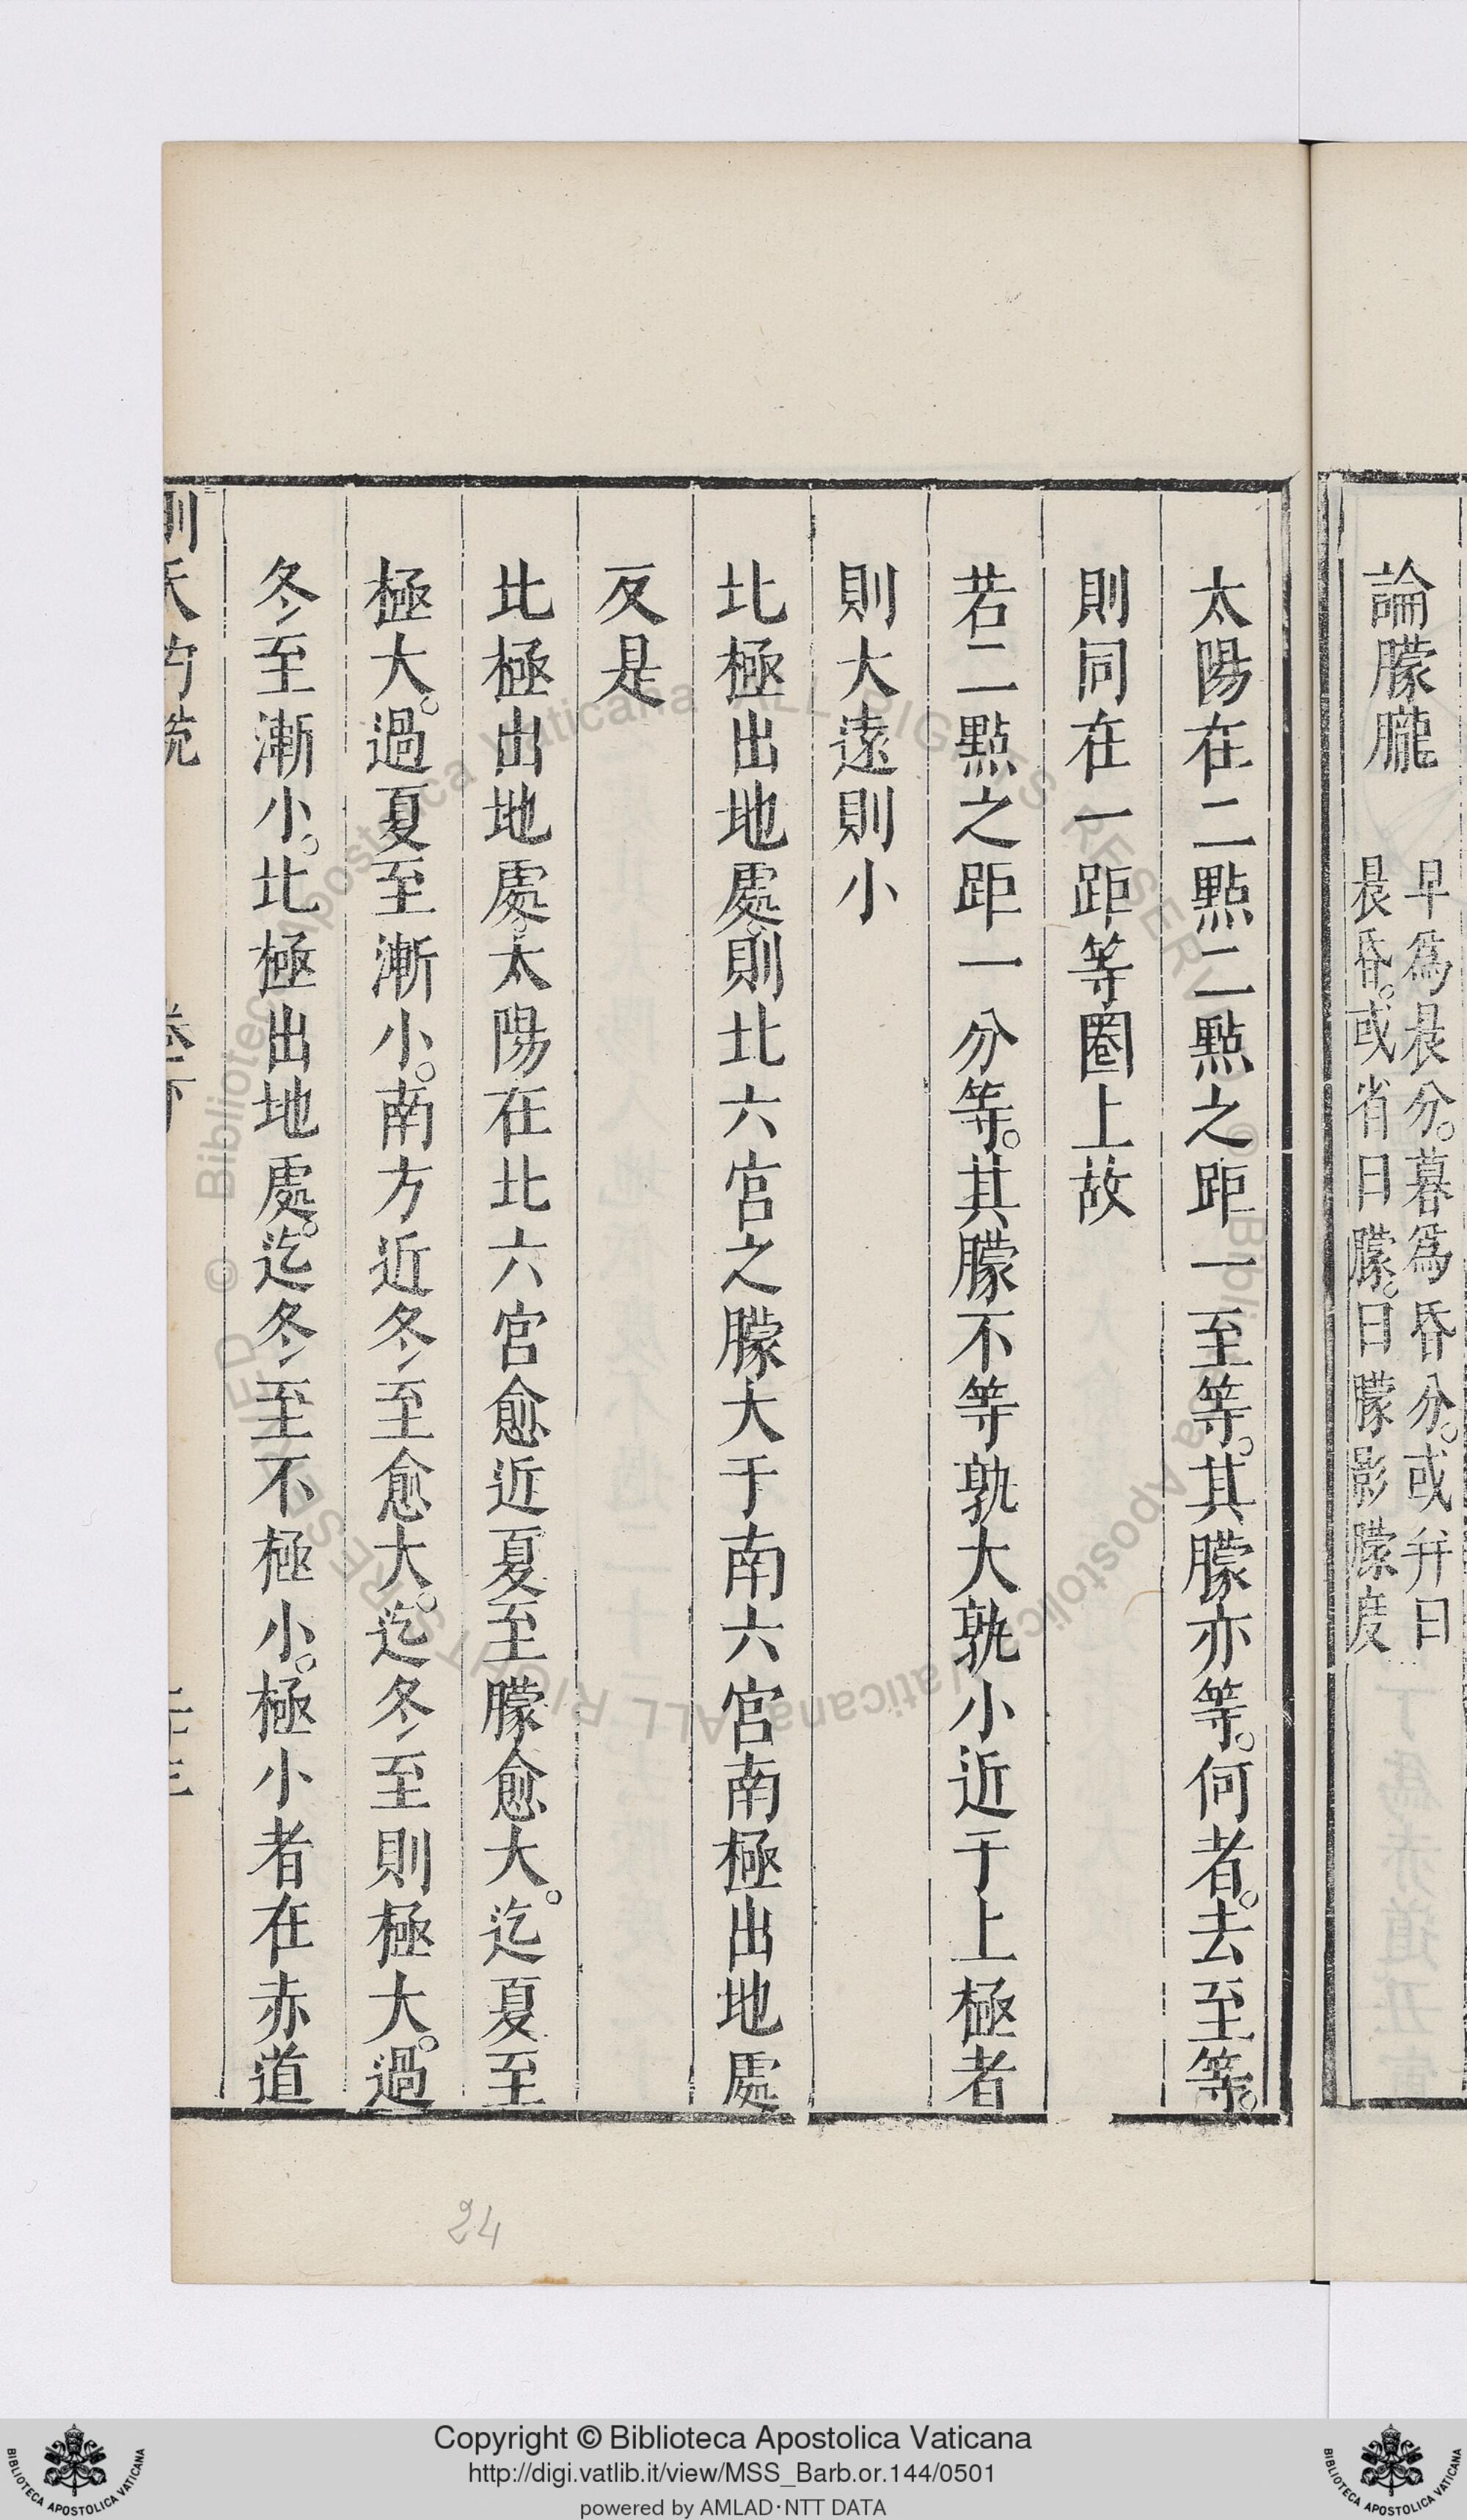 論朦朧
早爲晨分。暮爲昏分。或幷曰
晨昏。或省曰朦。曰朦影朦度
太陽在二點二點之距一至等。其朦亦等。何者。去至等。
則同在一距等圈上故
若二點之距一分等。其朦不等孰大孰小近于上極者
則大遠則小
北極出地處。則北六宮之朦大于南六宮南極出地處
反是
北極出地處。太陽在北六宮愈近夏至朦愈大。迄夏至
極大。過夏至漸小。南方近冬至愈大。迄冬至則極大。過
冬至漸小。北極出地處。迄冬至不極小。極小者在赤道
測天約說
卷下
24
© Biblioteca Apostolica Vaticana ALL RIGHTS RESERVED
Copyright © Biblioteca Apostolica Vaticana
http://digi.vatlib.it/view/MSS_Barb.or.144/0501
powered by AMLAD·NTT DATA
BIBLIOTECA APOSTOLICA VATICANA
BIBLIOTECA APOSTOLICA VATICANA